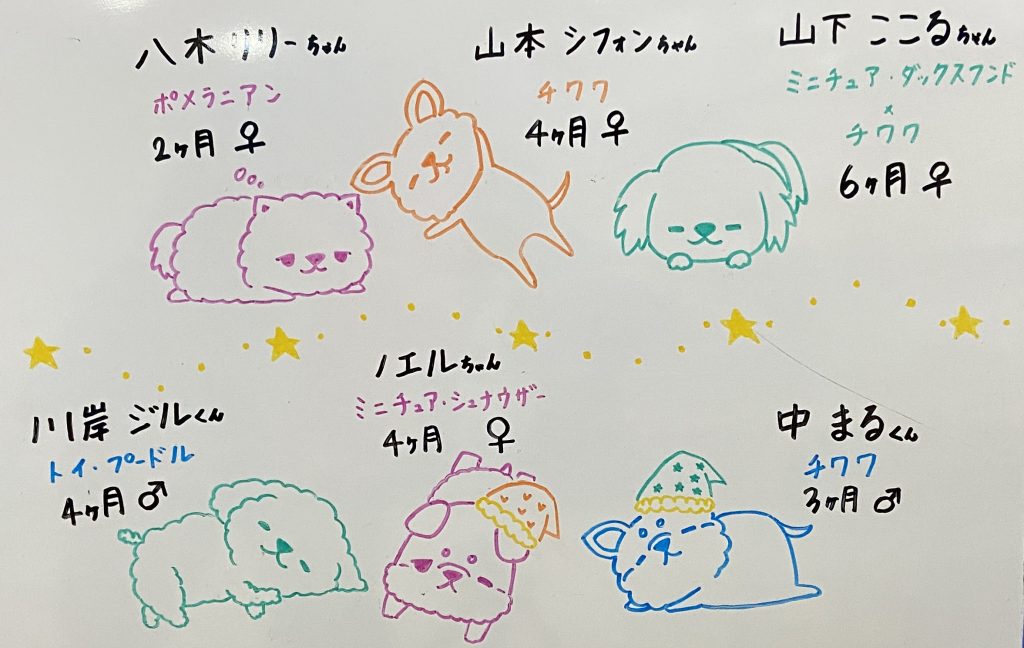 八木 リリーちゃん
ポメラニアン
2ヶ月 ♀
山本 シフォンちゃん
チワワ
4ヶ月 ♀
山下 こころちゃん
ミニチュア・ダックスフンド
×
チワワ
6ヶ月 ♀
川岸 ジルくん
トイ・プードル
4ヶ月 ♂
ノエルちゃん
ミニチュア・シュナウザー
4ヶ月 ♀
中 まるくん
チワワ
3ヶ月 ♂